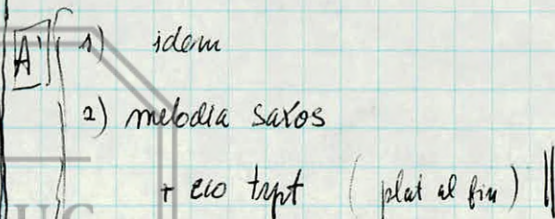 A' 1) idem
2) melodia saxos
+ eco trpt (plat al fin) ||